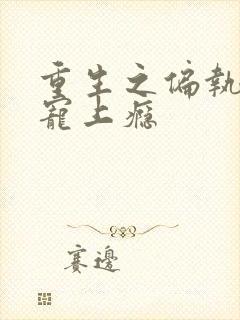 重生之偏執
寵上癮
賽邊